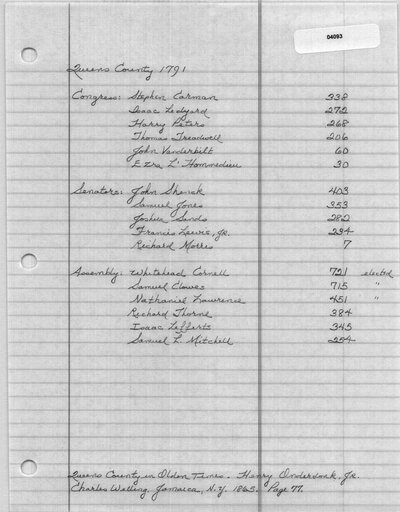 04093
Queens County 1791
Congress: Stephen Carman 338
Isaac Ledyard 272
Harry Peters 268
Thomas Treadwell 206
John Vanderbilt 60
Ezra L'Hommedieu 30
Senators: John Shenck 403
Samuel Jones 353
Joshua Sands 282
Francis Lewis, Jr. 234
Richard Morris 7
Assembly: Whitehead Cornell 721 elected
Samuel Clowes 715 "
Nathaniel Lawrence 451 "
Richard Thorne 384
Isaac Lefferts 345
Samuel L. Mitchell 254
Queens County in Olden Times. Henry Onderdonk, Jr.
Charles Welling, Jamaica, N.Y. 1865. Page 77.